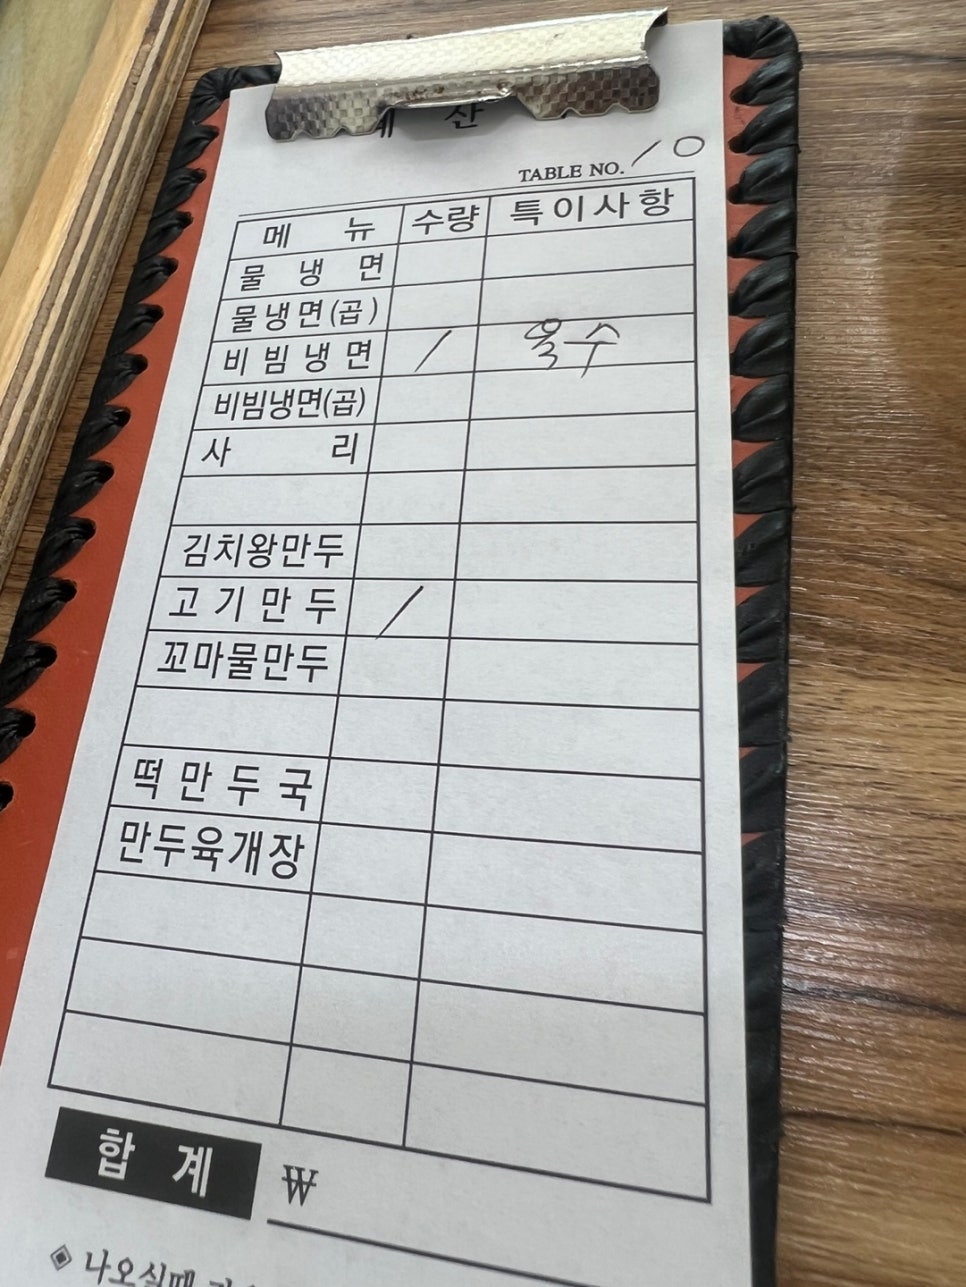 산
TABLE NO. 10
메 뉴 수량 특이사항
물 냉 면
물냉면(곱)
비 빔 냉 면 / 육수
비빔냉면(곱)
사 리
김치왕만두
고 기 만 두 /
꼬마물만두
떡 만 두 국
만두육개장
합 계 ₩
◈ 나오실때